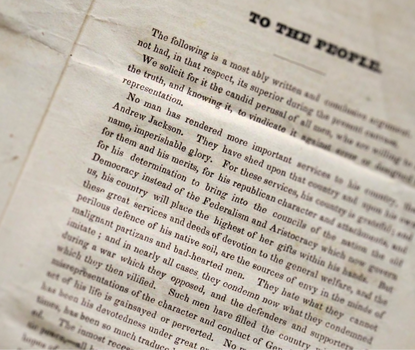 TO THE PEOPLE.
The following is a most ably written and conclusive argument
not had, in that respect, its superior during the present
We solicit for it the candid perusal of all men, who are willing to
the truth, and knowing it, to vindicate it against
representation.
No man has rendered more important services to his country
Andrew Jackson. They have shed upon that country and upon his
name, imperishable glory. For these services, his country is grateful; and
for them and his merits, for his republican character and attachments, and
for his determination to bring into the councils of the nation the old
Democracy instead of the Federalism and Aristocracy which now
us, his country will place the highest of her gifts within his hands. But
these great services and deeds of devotion to the general welfare, and the
perilous defence of his native soil, are the sources of envy in the minds of
malignant partizans and bad-hearted men. They hate what they cannot
imitate; and in nearly all cases they condemn now what they condemned
during a war which they opposed, and the defenders and supporters
which they then vilified. Such men have filled the country with
misrepresentations of the character and conduct of
act of his life is gainsayed or perverted. No
has been his devotedness under great
times, has been so much traduced
ed. The inmost